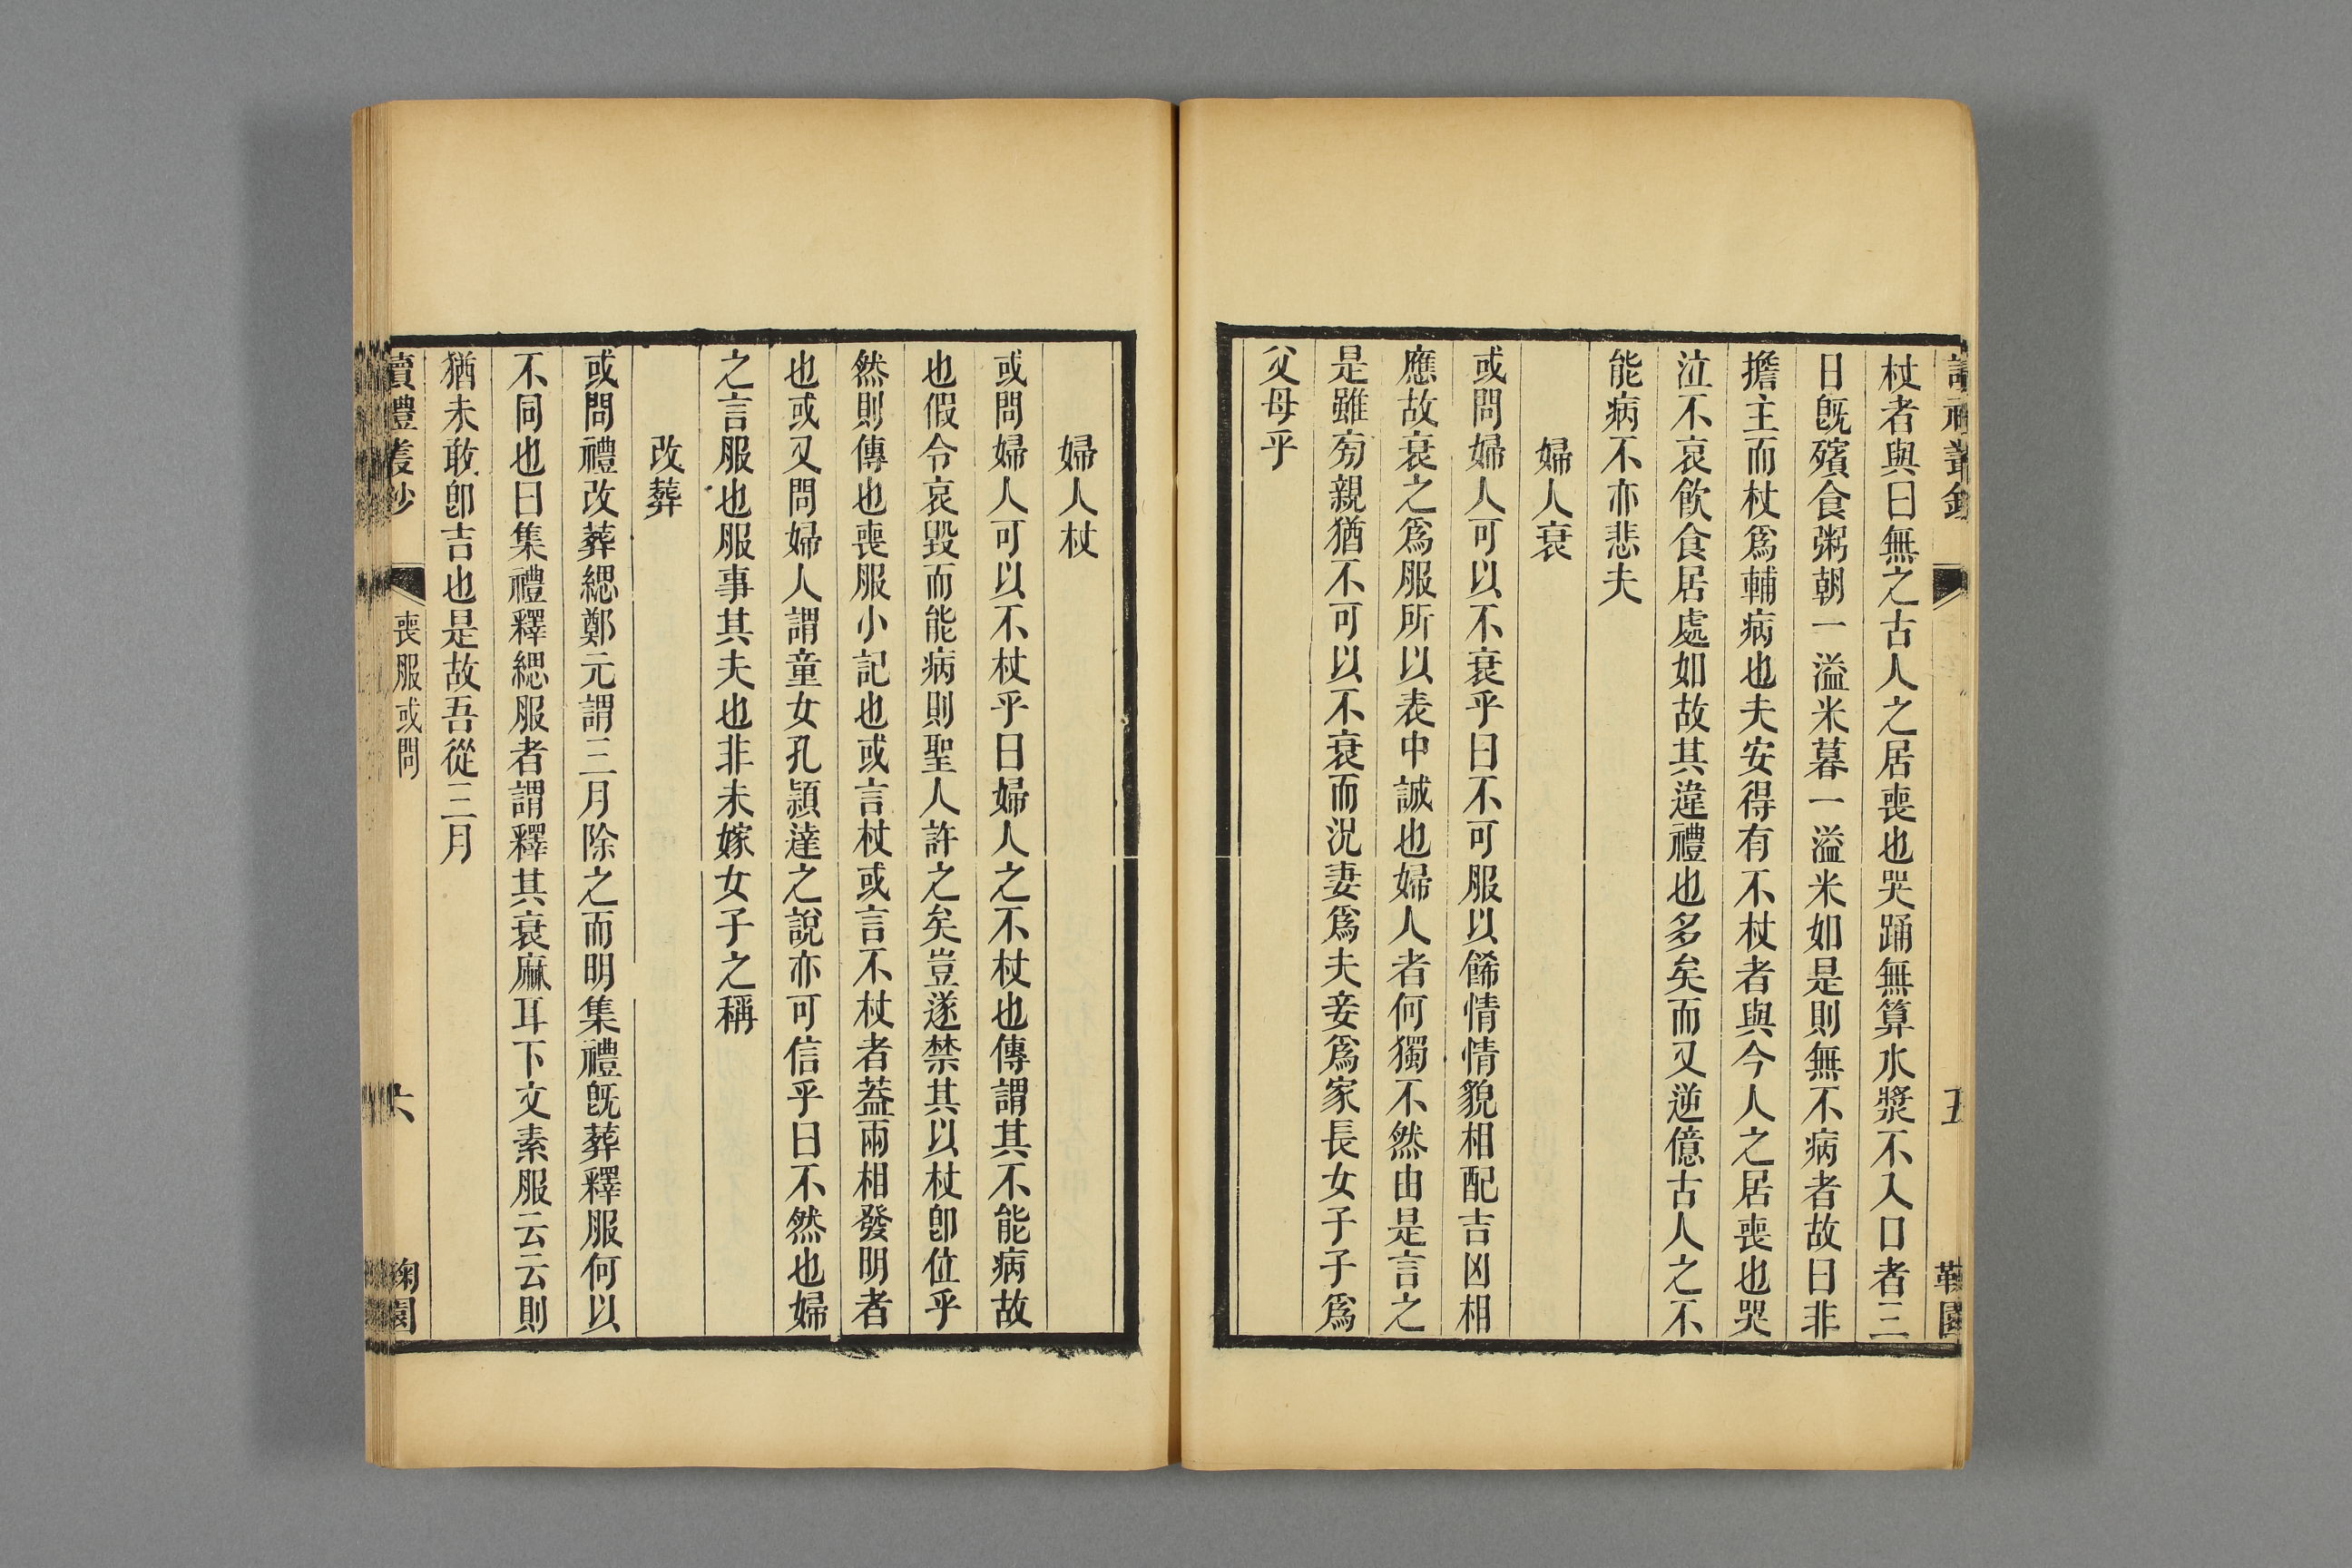 杖者與曰無之古人之居喪也哭踊無算水漿不入口者三
日旣殯食粥朝一溢米暮一溢米如是則無不病者故曰非
擔主而杖爲輔病也夫安得有不杖者與今人之居喪也哭
泣不哀飮食居處如故其違禮也多矣而又逆億古人之不
能病不亦悲夫
婦人衰
或問婦人可以不衰乎曰不可服以餙情情貌相配吉凶相
應故衰之爲服所以表中誠也婦人者何獨不然由是言之
是雖旁親猶不可以不衰而況妻爲夫妾爲家長女子子爲
父母乎
五
婦人杖
或問婦人可以不杖乎曰婦人之不杖也傳謂其不能病故
也假令哀毀而能病則聖人許之矣豈遂禁其以杖卽位乎
然則傳也喪服小記也或言杖或言不杖者葢兩相發明者
也或又問婦人謂童女孔穎達之說亦可信乎曰不然也婦
之言服也服事其夫也非未嫁女子之稱
改葬
或問禮改葬緦鄭元謂三月除之而明集禮旣葬釋服何以
不同也曰集禮釋緦服者謂釋其衰麻耳下文素服云云則
猶未敢卽吉也是故吾從三月
讀禮叢鈔 喪服或問 六 鞠園